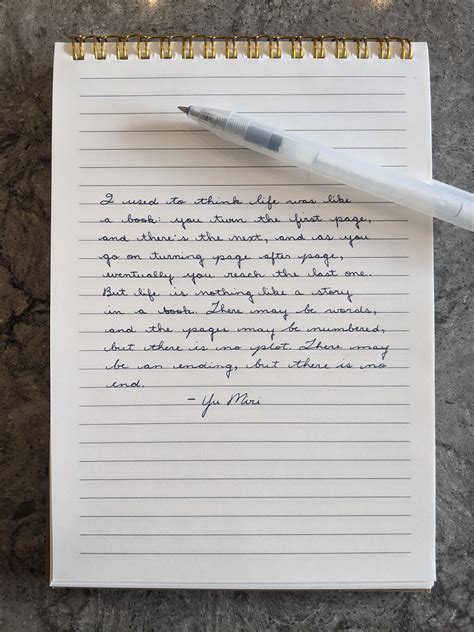 I used to think life was like
a book: you turn the first page,
and there's the next, and as you
go on turning page after page,
eventually you reach the last one.
But life is nothing like a story
in a book. There may be words,
and the pages may be numbered,
but there is no plot. There may
be an ending, but there is no
end.
- Yu Miri